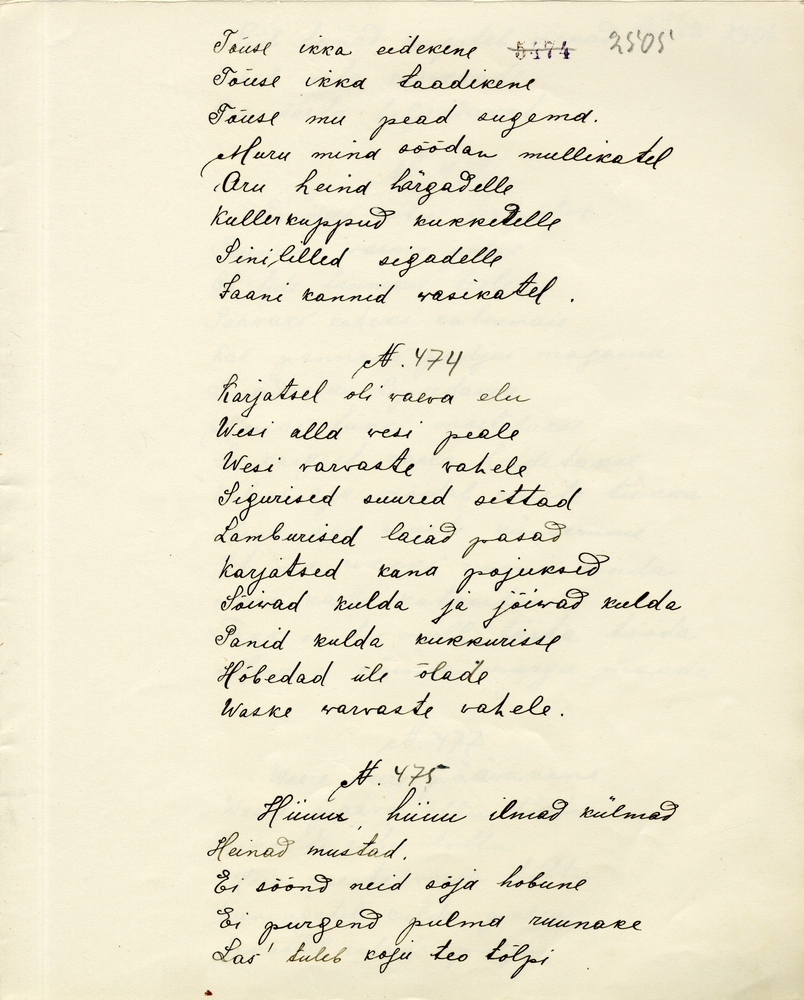 Tõuse ikka eidekene 5474 2505
Tõuse ikka taadikene
Tõuse mu pead sugema.
Muru mind söödan mullikatel
Aru heind härgadelle
Kullerkuppud kukkedelle
Sinililled sigadelle
Jaani kannid wasikatel.
N. 474
Karjatsel oli waewa elu
Wesi alla wesi peale
Wesi warwaste wahele
Sigurised suured sittad
Lamburised laiad pasad
Karjatsed kana pojuksed
Sõiwad kulda ja jõiwad kulda
Panid kulda kukkurisse
Hõbedad üle õlade
Waske warwaste wahele.
N. 475
Hüuu, hüuu ilmad külmad
Heinad mustad.
Ei söönd neid sõja hobune
Ei purgend pulma ruunake
Las' tuleb koju teo tõlpi